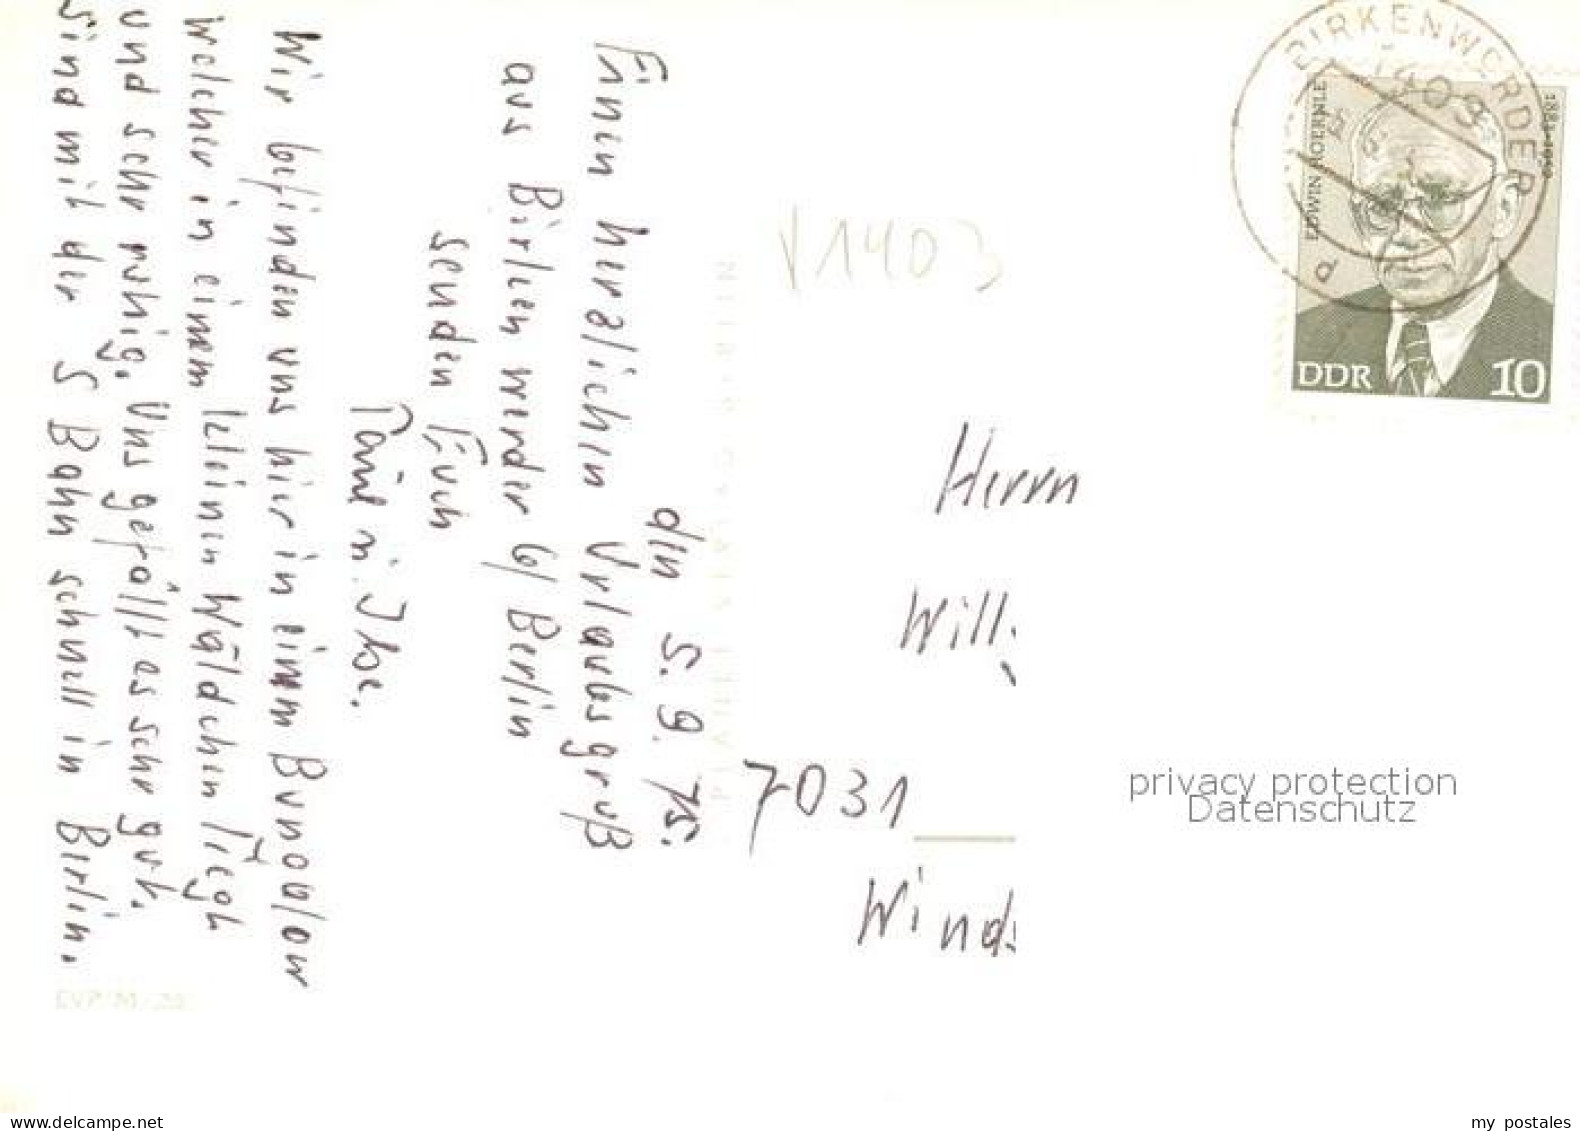 den 5. 9. 75.
Einen herzlichen Urlaubsgruß
aus Birkenwerder b/ Berlin
senden Euch
u. Ilse.
Wir befinden uns hier in einem Bungalow
welcher in einem kleinen Wäldchen liegt
und sehr ruhig. Uns gefällt es sehr gut.
Sind mit der S Bahn schnell in Berlin.
EVP M
V1403
BIRKENWERDER
1409
EDWIN HOERNLE
DDR 10
Herrn
Will
7031
Wind
privacy protection
Datenschutz
www.delcampe.net
my postales